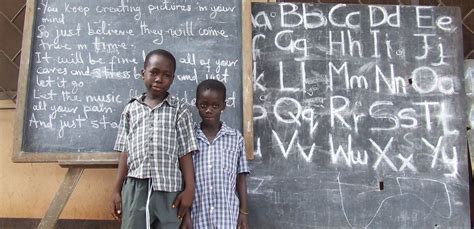 You keep creating pictures in your
mind
So just believe they will come
true in time
It will be fine all of your
cares and stress and just
let it go
Let the music
all your pain
And just
Aa Bb Cc Dd Ee
Gg Hh Ii Jj
Kk Ll Mm Nn Oo
Qq Rr Ss Tt
Vv Ww Xx Yy